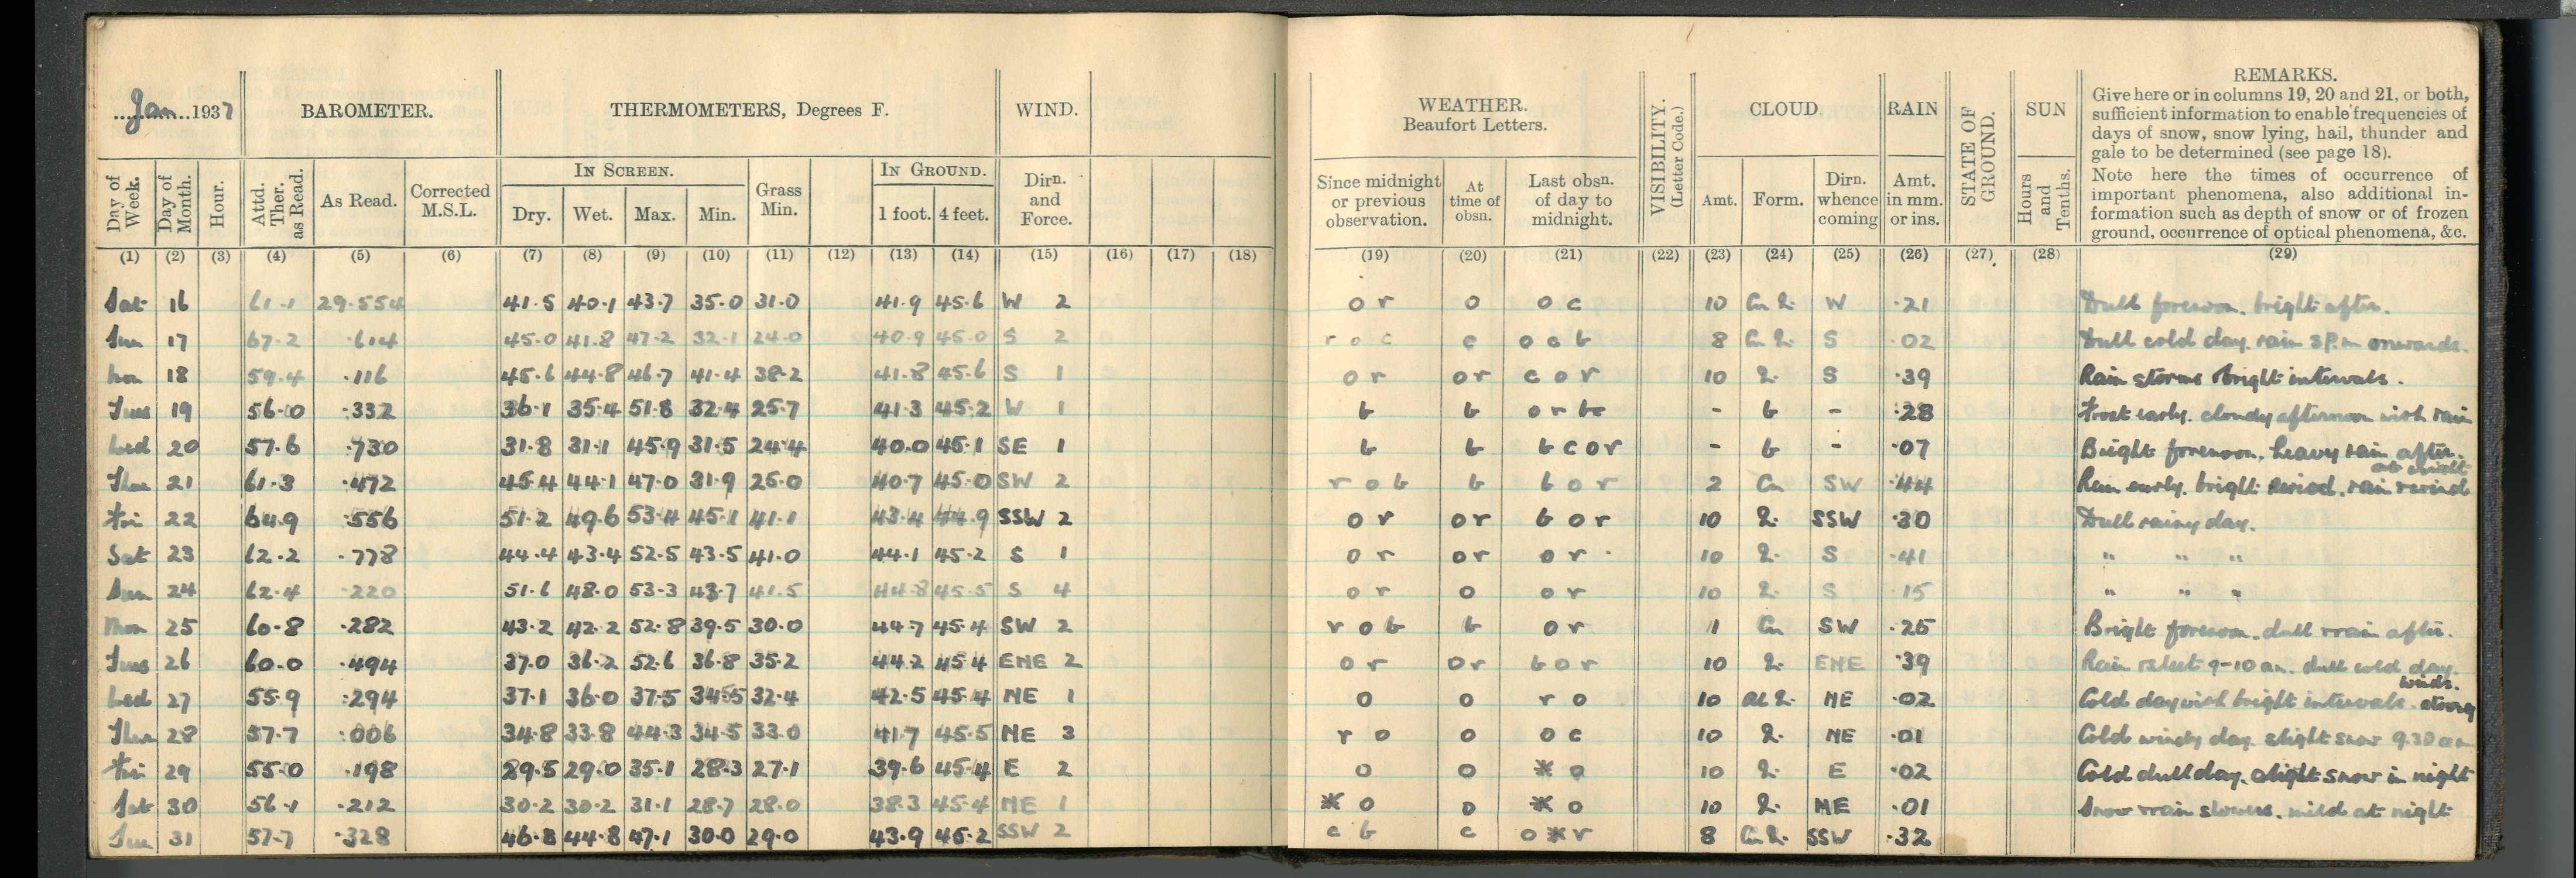 Jan. 1937 BAROMETER. THERMOMETERS, Degrees F. WIND. WEATHER. Beaufort Letters. VISIBILITY. (Letter Code.) CLOUD. RAIN STATE OF GROUND. SUN REMARKS.
Give here or in columns 19, 20 and 21, or both,
sufficient information to enable frequencies of
days of snow, snow lying, hail, thunder and
gale to be determined (see page 18).
Note here the times of occurrence of
important phenomena, also additional in-
formation such as depth of snow or of frozen
ground, occurrence of optical phenomena, &c.
IN SCREEN. IN GROUND.
Day of Week. Day of Month. Hour. Attd. Ther. as Read. As Read. Corrected M.S.L. Dry. Wet. Max. Min. Grass Min. 1 foot. 4 feet. Dirn. and Force. Since midnight or previous observation. At time of obsn. Last obsn. of day to midnight. Amt. Form. Dirn. whence coming Amt. in mm. or ins. Hours and Tenths.
(1) (2) (3) (4) (5) (6) (7) (8) (9) (10) (11) (12) (13) (14) (15) (16) (17) (18) (19) (20) (21) (22) (23) (24) (25) (26) (27) (28) (29)
Sat 16 61.1 29.554 41.5 40.1 43.7 35.0 31.0 41.9 45.6 W 2 o r o o c 10 W .21 Dull forenoon. bright after.
Sun 17 67.2 .614 45.0 41.8 47.2 32.1 24.0 40.9 45.0 S 2 r o c c o c b 8 S .02 Dull cold day. rain 3P.m onwards.
Mon 18 59.4 .116 45.6 44.8 46.7 41.4 38.2 41.8 45.6 S 1 o r o r c o r 10 S .39 Rain storms & bright intervals.
Tues 19 56.0 .332 36.1 35.4 51.8 32.4 25.7 41.3 45.2 W 1 b b o r bc - b - .28 Frost early. cloudy afternoon with rain
Wed 20 57.6 .730 31.8 31.1 45.9 31.5 24.4 40.0 45.1 SE 1 b b b c o r - b - .07 Bright forenoon, heavy rain after.
Thur 21 61.3 .472 45.4 44.1 47.0 31.9 25.0 40.7 45.0 SW 2 r o b b b o r 2 Cu SW .44 Rain early. bright period. rain & wind at night
Fri 22 64.9 .556 51.2 49.6 53.4 45.1 41.1 43.4 44.9 SSW 2 o r o r b o r 10 SSW .30 Dull rainy day.
Sat 23 62.2 .778 44.4 43.4 52.5 43.5 41.0 44.1 45.2 S 1 o r o r o r 10 S .41 " " "
Sun 24 62.4 .220 51.6 48.0 53.3 43.7 41.5 44.8 45.5 S 4 o r o o r 10 S .15 " " "
Mon 25 60.8 .282 43.2 42.2 52.8 39.5 30.0 44.7 45.4 SW 2 r o b b o r 1 Cu SW .25 Bright forenoon. dull & rain after.
Tues 26 60.0 .494 37.0 36.2 52.6 36.8 35.2 44.2 45.4 ENE 2 o r o r b o r 10 ENE .39 Rain & sleet 9-10 am. dull cold day.
Wed 27 55.9 .294 37.1 36.0 37.5 34.5 32.4 42.5 45.4 NE 1 o o r o 10 NE .02 Cold day with bright intervals. strong winds.
Thur 28 57.7 .006 34.8 33.8 44.3 34.5 33.0 41.7 45.5 NE 3 r o o o c 10 NE .01 Cold windy day. slight snow 9.30 am
Fri 29 55.0 .198 29.5 29.0 35.1 28.3 27.1 39.6 45.4 E 2 o o * o 10 E .02 Cold dull day. slight snow in night
Sat 30 56.1 .212 30.2 30.2 31.1 28.7 28.0 38.3 45.4 NE 1 * o o * o 10 NE .01 Snow & rain showers. mild at night
Sun 31 57.7 .328 46.8 44.8 47.1 30.0 29.0 43.9 45.2 SSW 2 c b c o * r 8 SSW .32